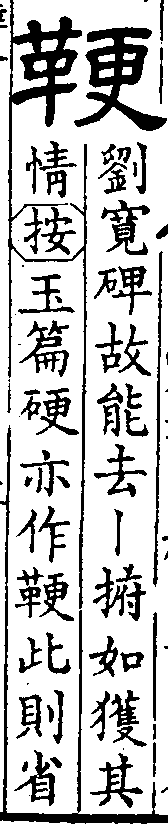 鞕
劉寬碑故能去丨捬如獲其
情按玉篇硬亦作鞕此則省